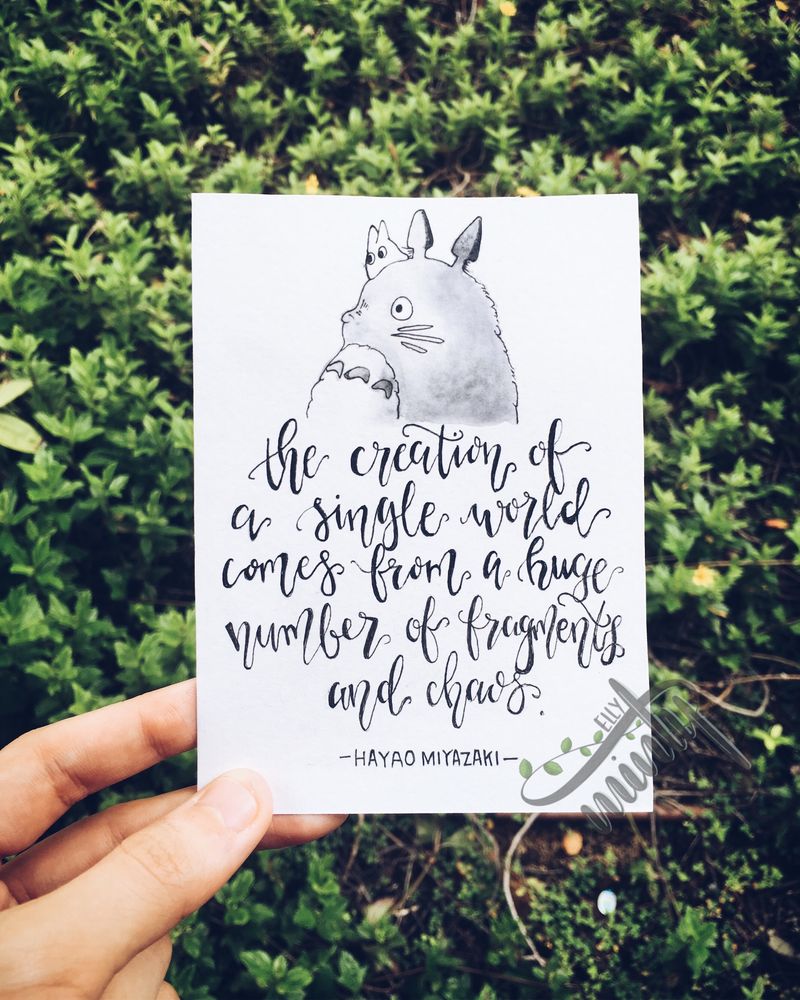 the creation of
a single world
comes from a huge
number of fragments
and chaos.
-HAYAO MIYAZAKI-
ELLY
minty